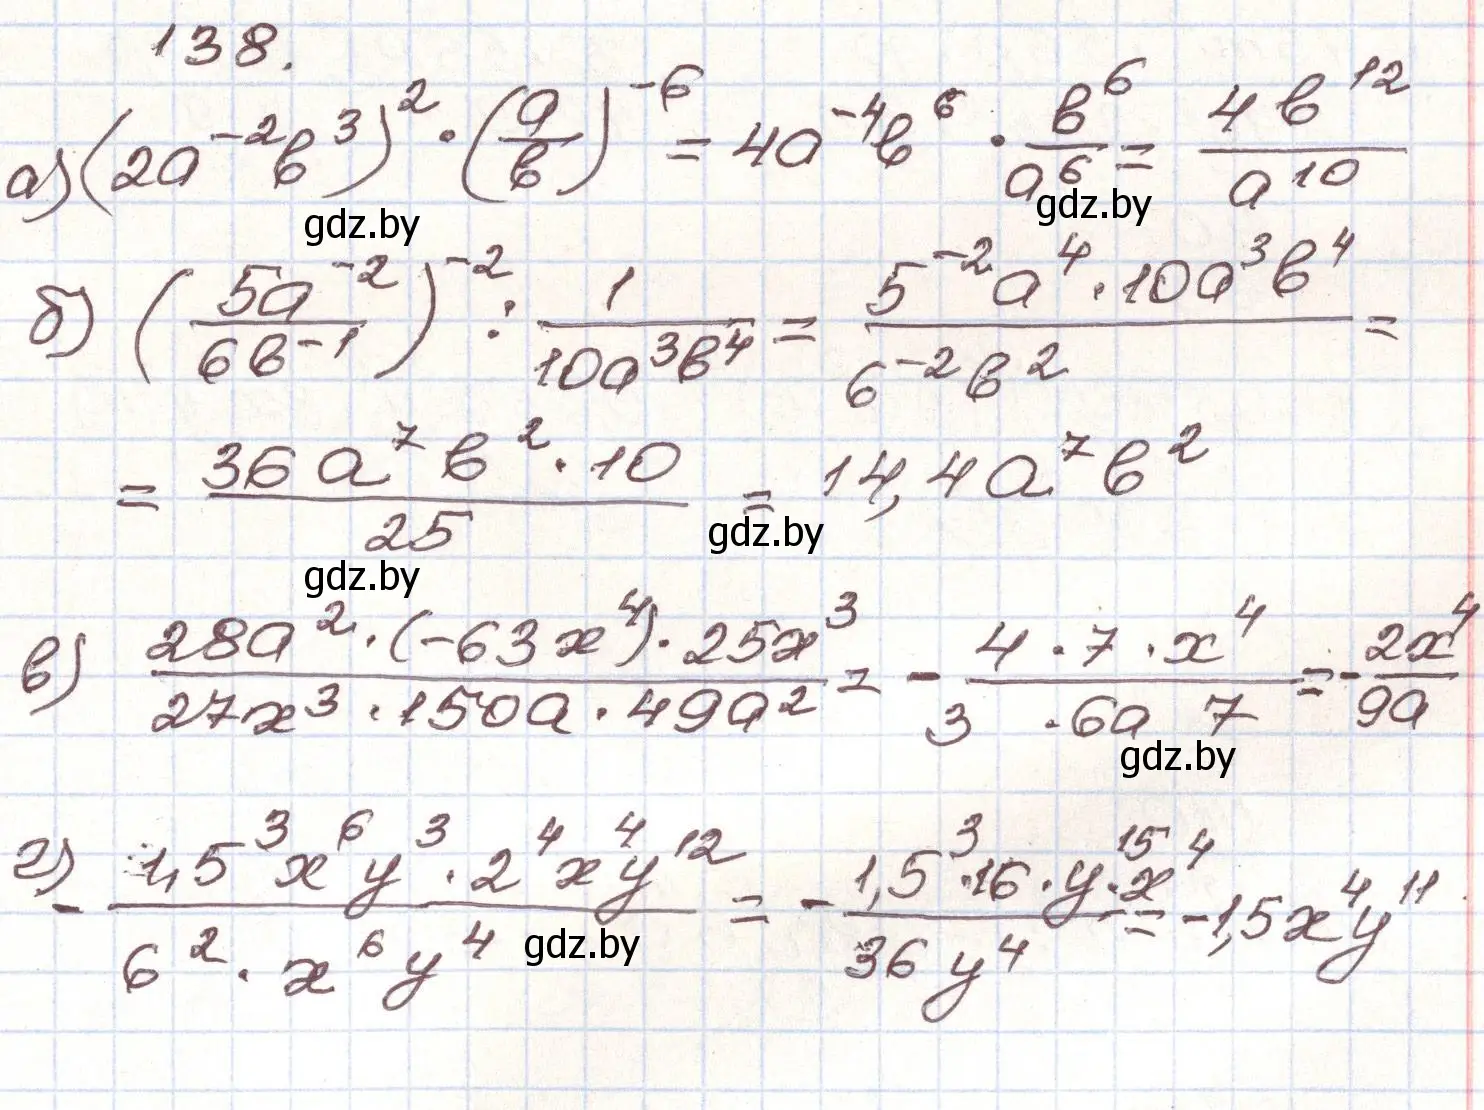 138.
а) (2a⁻²b³)² · (a/b)⁻⁶ = 4a⁻⁴b⁶ · b⁶/a⁶ = 4b¹²/a¹⁰
gdz.by gdz.by
б) (5a⁻²/6b⁻¹)⁻² : 1/10a³b⁴ = 5⁻²a⁴ · 10a³b⁴/6⁻²b² =
= 36a⁷b² · 10/25 = 14,4a⁷b²
gdz.by
gdz.by
в) 28a² · (-63x⁴) · 25x³/27x³ · 150a · 49a² = - 4 · 7 · x⁴/3 · 6a 7 = - 2x⁴/9a
gdz.by
г) - 1,5³x⁶y³ · 2⁴x⁴y¹²/6² · x⁶y⁴ = - 1,5³ · 16 · y¹⁵ · x⁴/36y⁴ = -1,5x⁴y¹¹
gdz.by